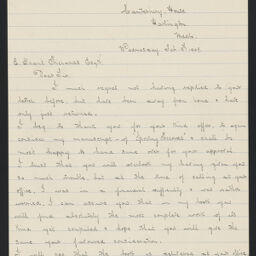 Canterbury House
Wellington
Wednesday Feb 5th
E. Grant Richards Esqr.
Dear Sir,
I much regret not having replied to your
letter before, but have been away from home & have
only just returned.
I beg to thank you for your kind offer to again
consider my manuscript of & shall be
most happy to send same over for your approval.
I trust that you will my having given you
so much trouble, but at the time of calling at your
office, I was in a financial difficulty & was rather
worried. I can assure you that in my book you
will find absolutely the most complete work of its
kind yet compiled & hope that you will give the
same your favored consideration.
I will see that the book is delivered at your office